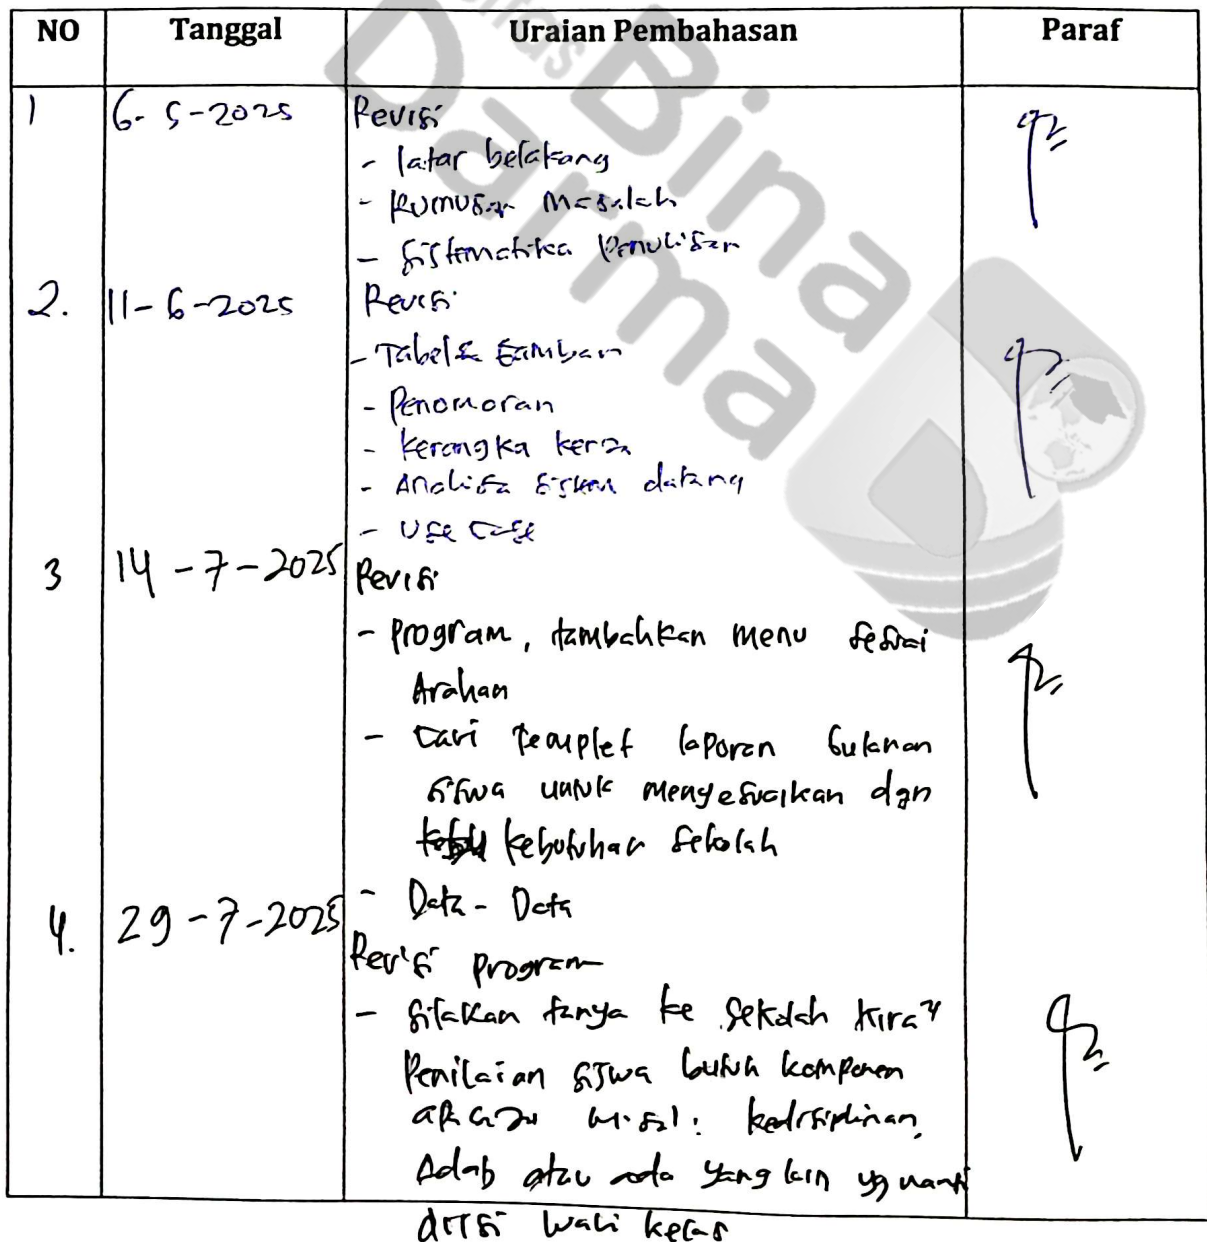 NO Tanggal Uraian Pembahasan Paraf
1 6-5-2025 Revisi
- latar belakang
- Rumusan Masalah
- Sistematika Penulisan
2. 11-6-2025 Revisi
- Tabel & Gambar
- Penomoran
- kerangka kerja
- Analisa sistem datang
- Use Case
3 14-7-2025 Revisi
- Program, tambahkan menu sesuai
Arahan
- Cari templet laporan bulanan
siswa untuk menyesuaikan dgn
kebutuhan sekolah
- Data - Data
4. 29-7-2025
Revisi program
- silakan tanya ke sekolah kira"
Penilaian siswa butuh komponen
apa saja misal: kedisiplinan,
Adab atau ada yang lain yg nanti
diisi wali kelas
Bina
Darma